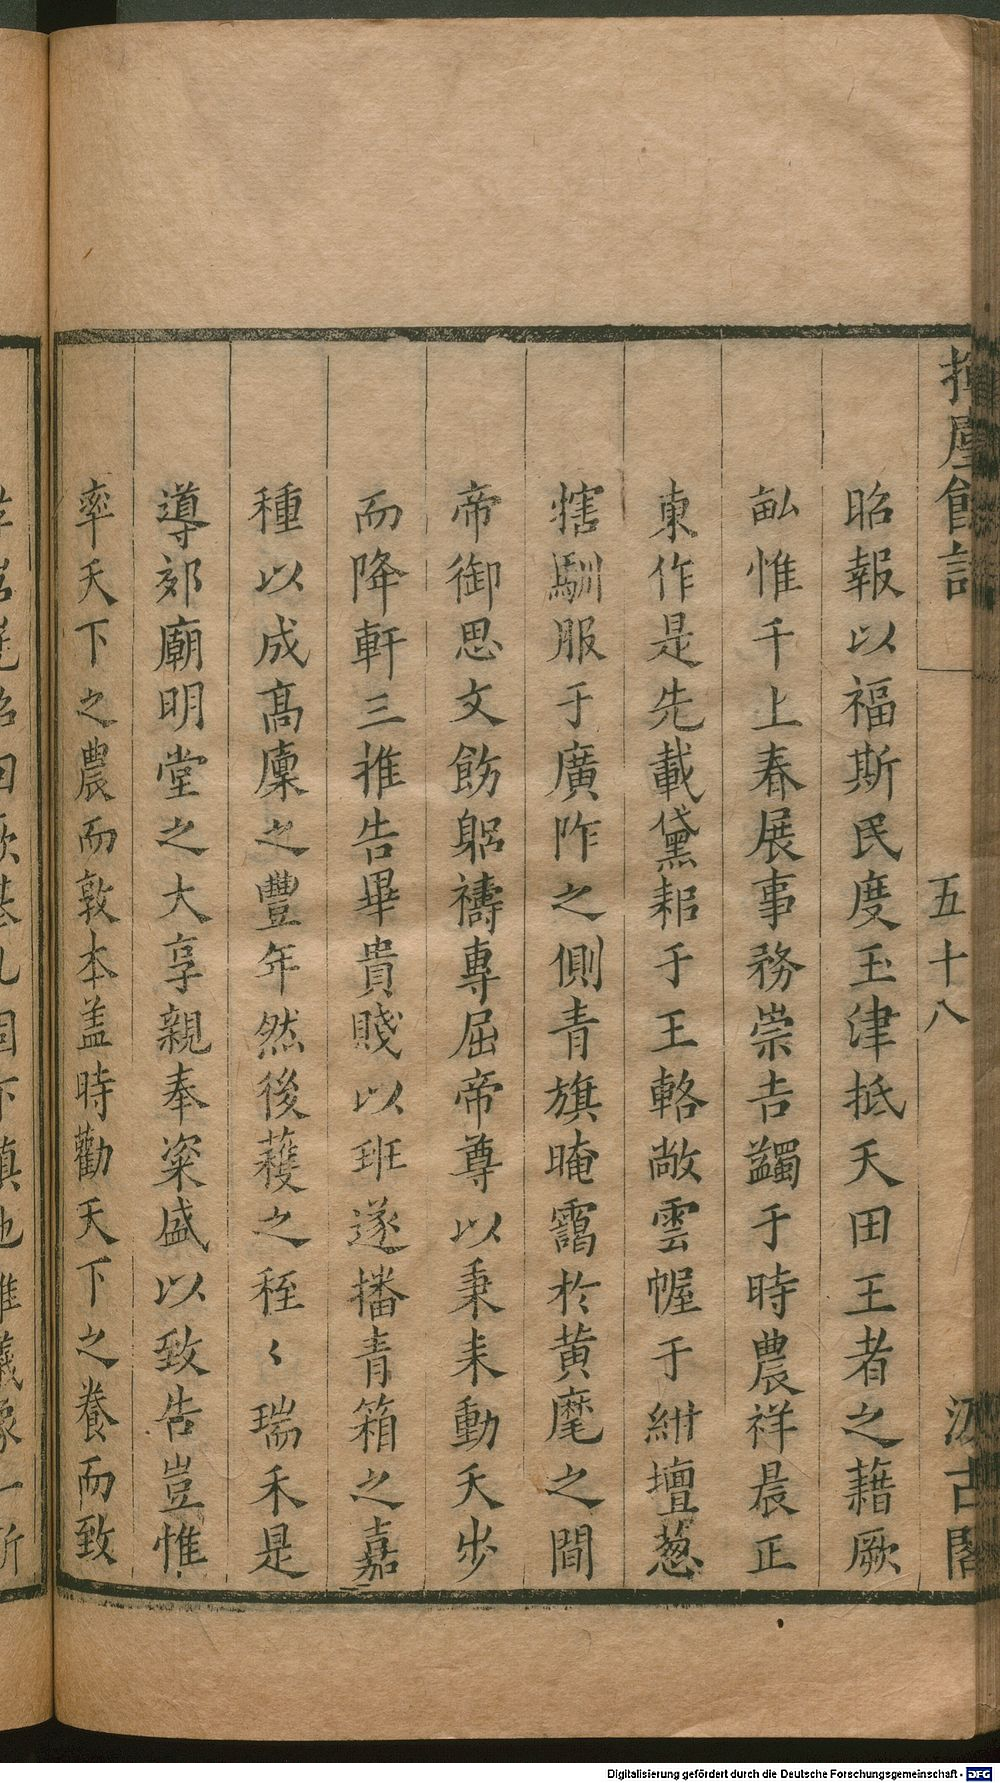 揮麈餘話
五十八
汲古閣
昭報以福斯民度玉津抵天田王者之藉厥
畝惟千上春展事務崇吉蠲于時農祥晨正
東作是先載黛耜于王輅敞雲幄于紺壇葱
犗馴服于廣阼之側青旗晻靄於黄麾之間
帝御思文飭躬禱專屈帝尊以秉耒動天步
而降軒三推告畢貴賤以班遂播青箱之嘉
種以成高廩之豐年然後穫之秷〻瑞禾是
導郊廟明堂之大享親奉粢盛以致告豈惟
率天下之農而敦本盖時勸天下之養而致
Digitalisierung gefördert durch die Deutsche Forschungsgemeinschaft - DFG